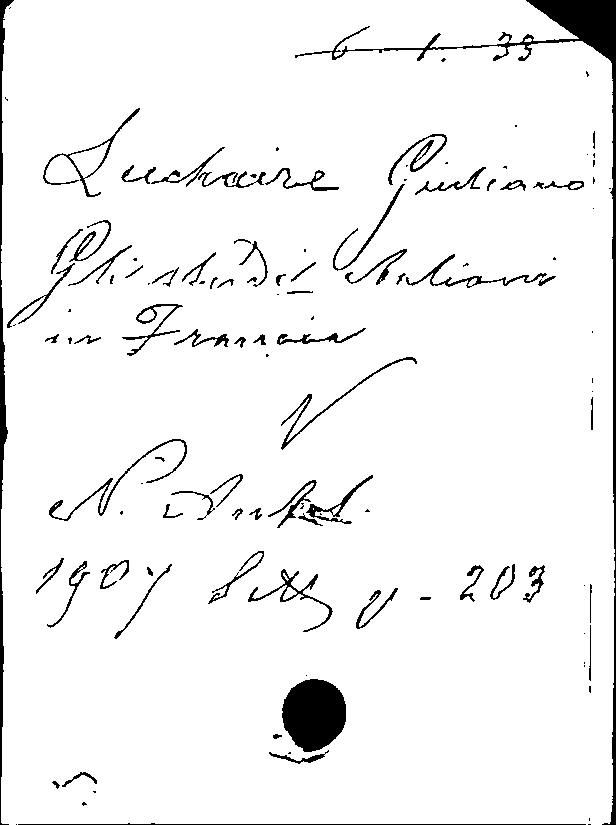 6. 1. 33
Luchaire Giuliano
Gli studi italiani
in Francia
V
N. Antol.
1907 Sett p. 203